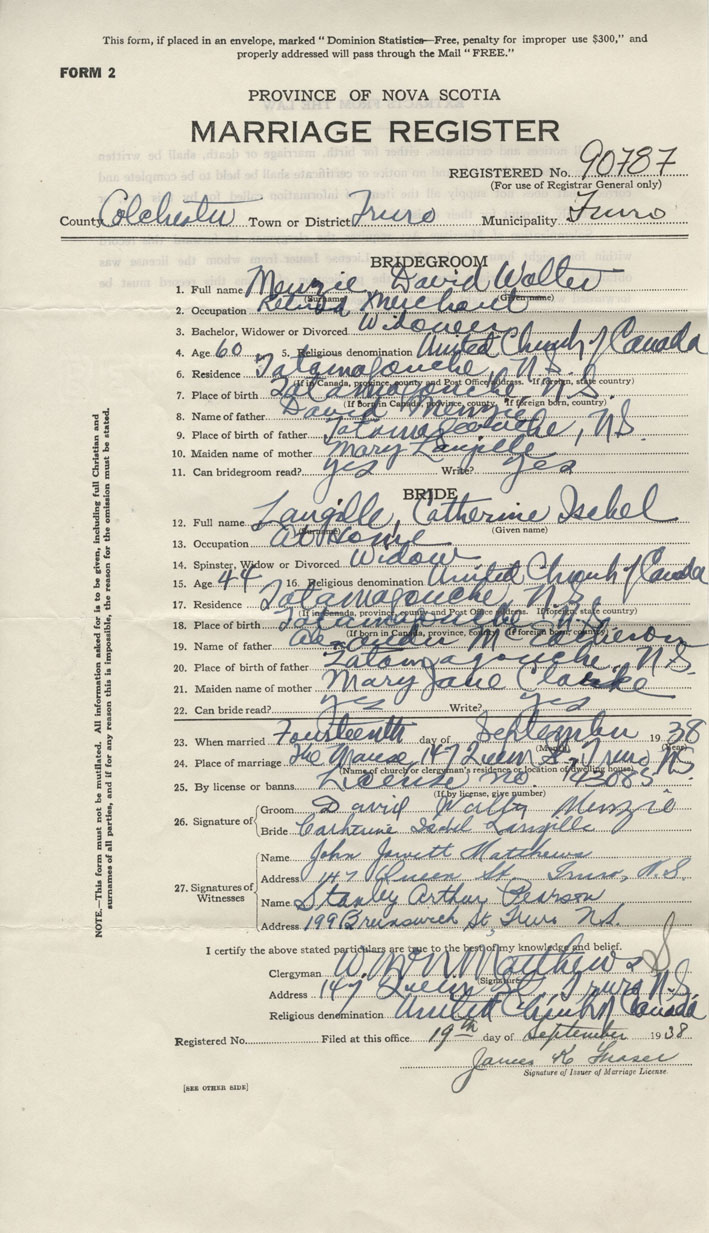 This form, if placed in an envelope, marked “ Dominion Statistics—Free, penalty for improper use $300,” and
properly addressed will pass through the Mail “ FREE.”
FORM 2
PROVINCE OF NOVA SCOTIA
MARRIAGE REGISTER
REGISTERED No. 90787
(For use of Registrar General only)
County Colchester Town or District Truro Municipality Truro
BRIDEGROOM
1. Full name Menzie, David Walter
(Surname) (Given name)
2. Occupation Retired Merchant
3. Bachelor, Widower or Divorced Widower
4. Age 60 5. Religious denomination United Church of Canada
6. Residence Tatamagouche, N.S.
(If in Canada, province, county and Post Office address. If foreign, state country)
7. Place of birth Tatamagouche N.S.
(If born in Canada, province, county. If foreign born, country)
8. Name of father David Menzie
9. Place of birth of father Tatamagouche, N.S.
10. Maiden name of mother Mary Langille
11. Can bridegroom read? yes Write? yes
BRIDE
12. Full name Langille, Catherine Isabel
(Surname) (Given name)
13. Occupation At Home
14. Spinster, Widow or Divorced Widow
15. Age 44 16. Religious denomination United Church of Canada
17. Residence Tatamagouche, N.S.
(If in Canada, province, county and Post Office address. If foreign state country)
18. Place of birth Tatamagouche N.S.
(If born in Canada, province, county. If foreign born, country)
19. Name of father Alexander
20. Place of birth of father Tatamagouche, N.S.
21. Maiden name of mother Mary Jane Clarke
22. Can bride read? yes Write? yes
23. When married Fourteenth day of September 1938
(Month) (Year)
24. Place of marriage The Manse, 147 Queen St. Truro N.S.
(Name of church or clergyman's residence or location of dwelling house)
25. By license or banns License No.
(If by license, give number)
26. Signature of
Groom David Walter Menzie
Bride Catherine Isabel Langille
27. Signatures of Witnesses
Name John Jewett Matthews
Address 147 Queen St. Truro, N.S.
Name Stanley Arthur Pearson
Address 199 Brunswick St, Truro N.S.
I certify the above stated particulars are true to the best of my knowledge and belief.
Clergyman Matthews
(Signature)
Address 147 Queen St., Truro N.S.
Religious denomination United Church of Canada
Registered No. Filed at this office 19th day of September 1938
James K Fraser
Signature of Issuer of Marriage License.
[SEE OTHER SIDE]
NOTE.—This form must not be mutilated. All information asked for is to be given, including full Christian and
surnames of all parties, and if for any reason this is impossible, the reason for the omission must be stated.